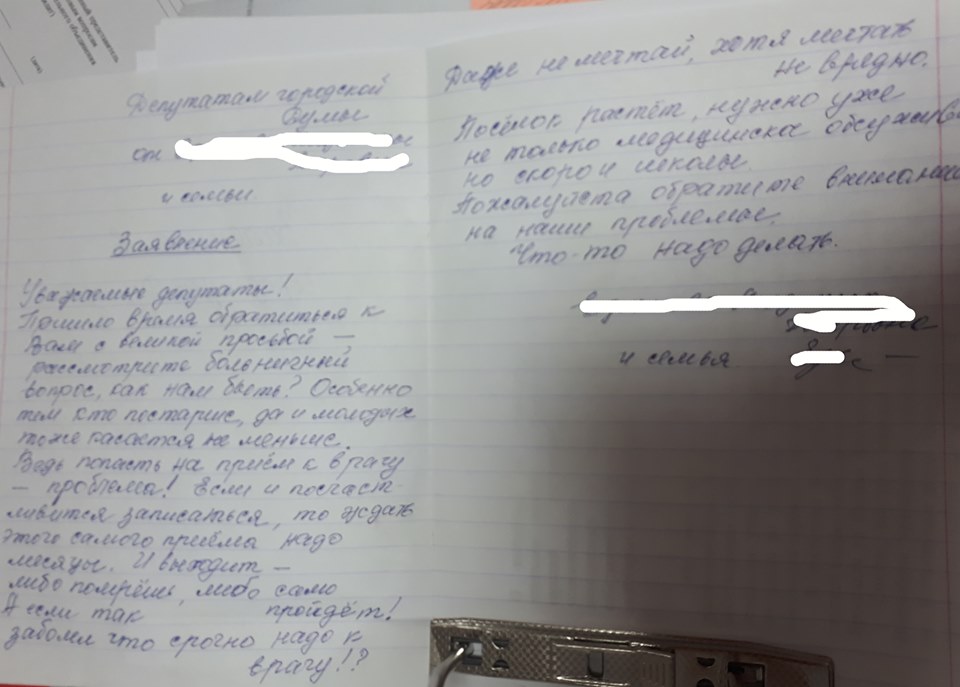 Депутатам городской
Думы
от
и семьи
Заявление
Уважаемые депутаты!
Пришло время обратиться к
Вам с великой просьбой —
рассмотрите больничный
вопрос, как нам быть? Особенно
тем кто постарше, да и молодых
тоже касается не меньше.
Ведь попасть на приём к врачу
— проблема! Если и посчаст
ливится записаться, то ждать
этого самого приёма надо
месяцы. И выходит —
либо помрёшь, либо само
пройдёт!
А если так
заболел что срочно надо к
врачу!?
Даже не мечтай, хотя мечтать
не вредно.
Посёлок растёт, нужно уже
не только медицинское
но скоро и школы.
Пожалуйста обратите внимание
на наши проблемы.
Что-то надо делать.
и семья